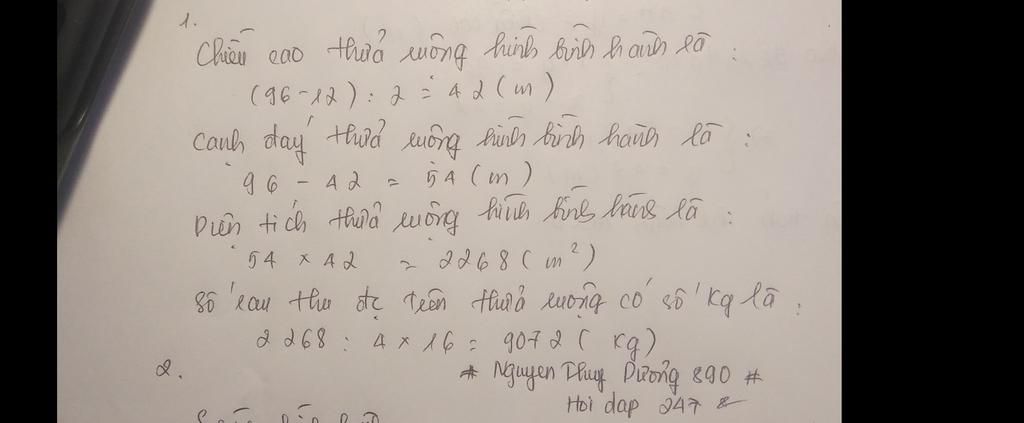 1.
Chiều cao thửa ruộng hình bình hành là :
(96-12) : 2 = 42 (m)
Cạnh đáy thửa ruộng hình bình hành là :
96 - 42 = 54 (m)
Diện tích thửa ruộng hình bình hàng là :
54 × 42 = 2268 (m²)
Số rau thu đc trên thửa ruộng có số kg là :
2268 : 4 × 16 = 9072 (kg)
2. * Nguyen Thuy Dương 890 #
Hoi dap 247